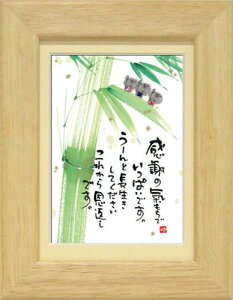 感謝の気もちで
いっぱいです。
うーんと長生き
してください
これから恩返し
です。